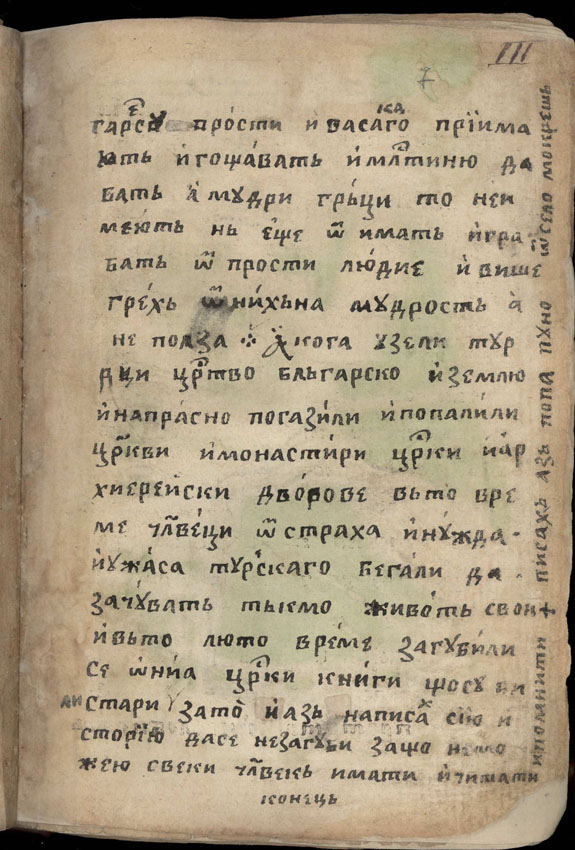 III
7
гарсе прости и васакаго прїима
ють и гощавать и млтиню да
вать а мудри грьци то неи
меють нь еще ѿ имать и гра
бать ѿ прости людие и више
грехь ѿ нихь на мудрость а
не полза ⁘ А кога узели тур
рци црⷭтво бльгарско и землю
и напрасно погазили и попалили
црⷦви и монастири црⷭки и ар
хиерейски дворове вьто вре
ме члвеци ѿ страха и нужда
и ужаса турⷭкаго бегали да
зачувать тькмо животь свои
и вьто люто време загубили
се ѡнїа црⷭки книги щосу би
ли стари зато и азь написах сїю и
сторїю дасе незагуби защо немо
жею свеки члвекь имати и читати
конець
и помнити + писахь азь попа пуно ѿ село мокрешь